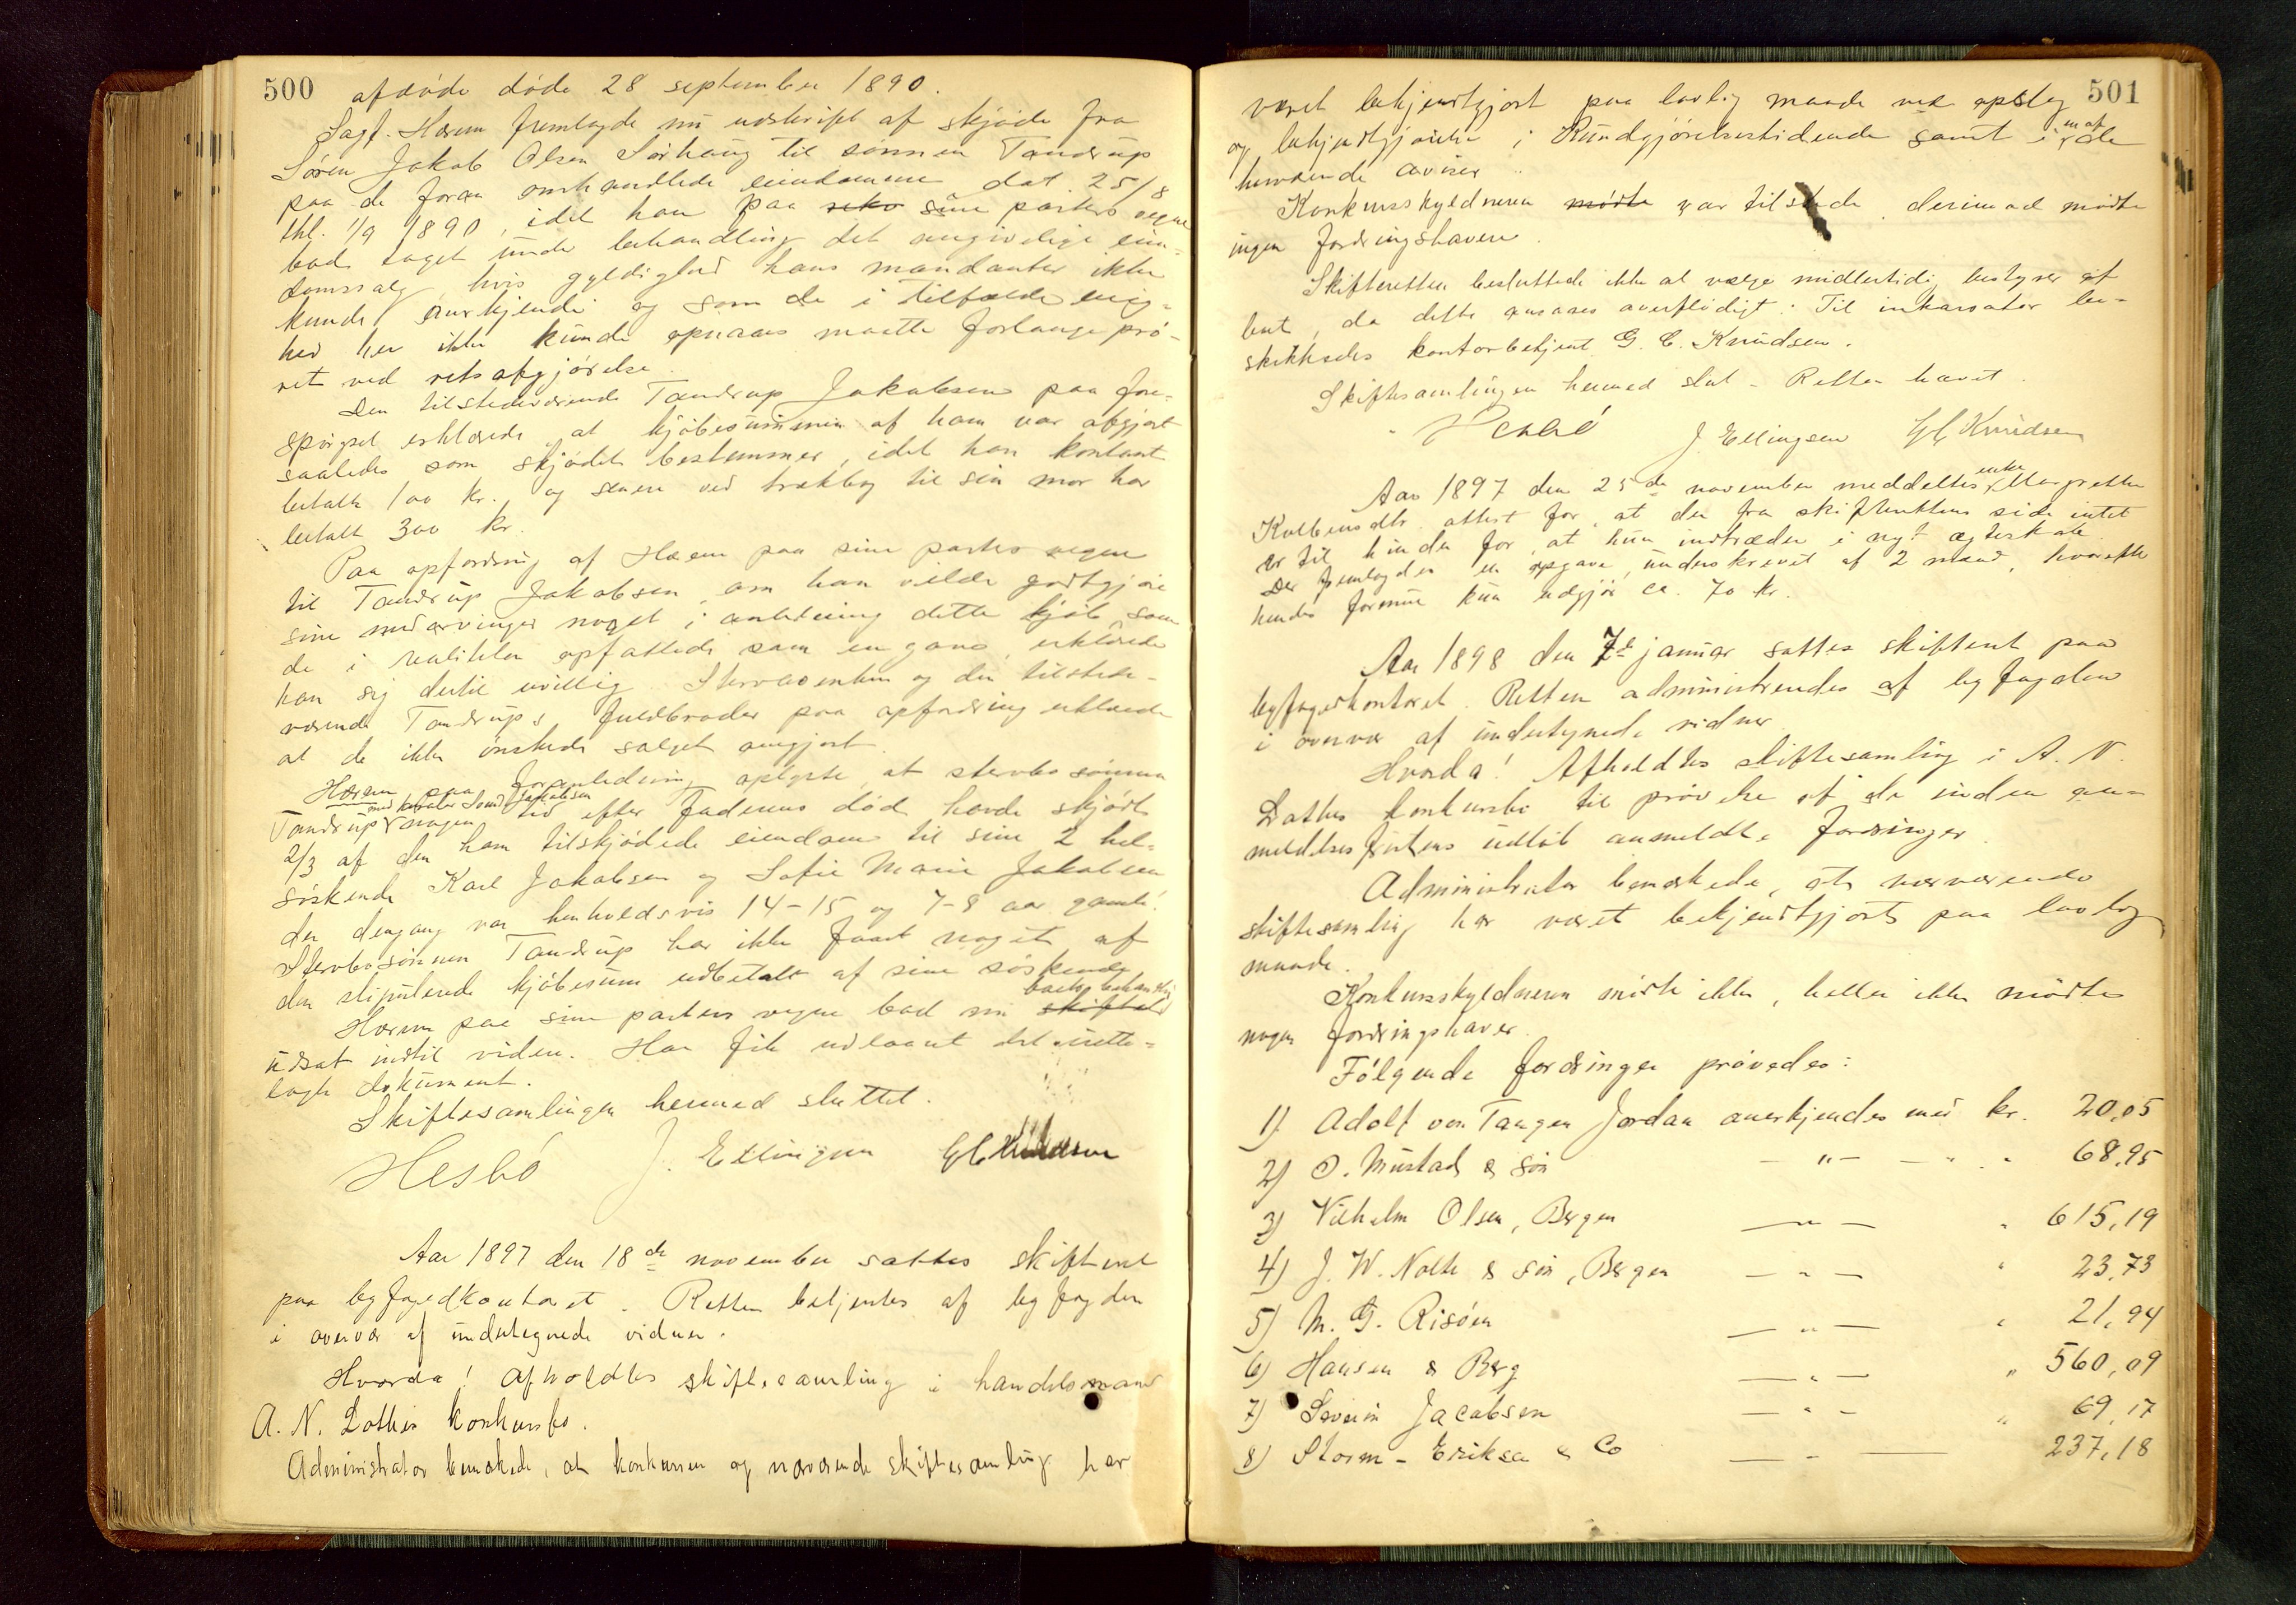 500
afdøde døde 28 september 1890.
Sagf. Hærem fremlagde nu udskrift af skjøde fra
Søren Jakob Olsen Sørhaug til sønnen Tandrup
paa de foran omhandlede eiendomme dat. 25/8
thl. 1/9 1890, idet han paa sine parters vegne
bad taget under behandling det angivelige eien-
domssalg, hvis gyldighed hans mandanter ikke
kunde anerkjende og som de i tilfælde enig-
hed her ikke kunde opnaaes maatte forlange prø-
vet ved retsafgjørelse.
Den tilstedeværende Tandrup Jakobsen paa fore-
spørgsel erklærede, at kjøbesummen af ham var afgjort
saaledes som skjødet bestemmer, idet han kontant
betalte 100 kr., og senere ved trækbog til sin mor har
betalt 300 kr.
Paa opfordring af Hærem paa sine parters vegne
til Tandrup Jakobsen, om han vilde godtgjøre
sine medarvinger noget i anledning dette kjøb, som
de i realiteten opfattede som en gave, erklærede
han sig dertil uvillig. Stervboenken og den tilstede-
værende Tandrups fuldbroder paa opfordring erklærede
at de ikke ønskede salget omgjort.
Hærem paa foranledning oplyste, at stervbosønnen
Tandrup nogen tid efter faderens død havde skjødt
2/3 af den ham tilskjødede eiendom til sine 2 hel-
søskende Karl Jakobsen og Sofie Marie Jakobsen
der dengang var henholdsvis 14-15 og 7-8 aar gamle.
Stervbosønnen Tandrup har ikke faaet noget af
den stipulerede kjøbesum udbetalt af sine søskende
Hærem paa sine parters vegne bad nu boets behandling
udsat indtil videre. Han fik udlaant det frem-
lagte dokument.
Skiftesamlingen hermed sluttet.
Hesbó J. Ellingsen GC Knudsen
Aar 1897 den 18de november sattes skifteret
paa byfogedkontoret. Retten betjentes af byfogden
i overvær af undertegnede vidner.
Hvorda! Afholdtes skiftesamling i handelsmand
A. N. Lothes konkursbo.
Administrator bemærkede, at konkursen og nærværende skiftesamling har
501
været bekjendtgjort paa lovlig maade ved opslag
og bekjendtgjørelse i Kundgjørelsestidende samt i en af de
herværende aviser.
Konkursskyldneren mødte var tilstede, derimod mødte
ingen fordringshavere.
Skifteretten besluttede ikke at vælge midlertidig bestyrer af
boet, da dette ansaaes overflødigt. Til inkassator be-
skikkedes kontorbetjent G. C. Knudsen.
Skiftesamlingen hermed slut - Retten hævet.
Hesbó J. Ellingsen GC Knudsen
Aar 1897 den 25de november meddeltes enke Margrethe
Kolbensdtr. attest for, at der fra skifterettens side intet
er til hinder for, at hun indtræder i nyt ægteskab.
Der fremlagdes en opgave, underskrevet af 2 mænd, hvorefter
hendes formue kun udgjør ca. 70 kr.
Aar 1898 den 7de januar sattes skifteret paa
byfogedkontoret. Retten administreredes af byfogden
i overvær af undertegnede vidner.
Hvorda! Afholdtes skiftesamling i A. N.
Lothes konkursbo til prøvelse af de inden an-
meldelsesfristens udløb anmeldte fordringer.
Administrator bemærkede, at nærværende
skiftesamling har været bekjendtgjort paa lovlig
maade.
Konkursskyldneren mødte ikke, heller ikke mødte
nogen fordringshaver.
Følgende fordringer prøvedes:
1) Adolf von Tangen Jordan anerkjendes med kr. 20,05
2) O. Mustad & søn — " — " 68,95
3) Vilhelm Olsen, Bergen — " — " 615,19
4) J. W. Nolte & søn, Bergen — " — " 23,73
5) M. G. Risøen — " — " 21,94
6) Hansen & Berg — " — " 560,09
7) Severin Jacobsen — " — " 69,17
8) Storm-Eriksen & Co — " — 237,18